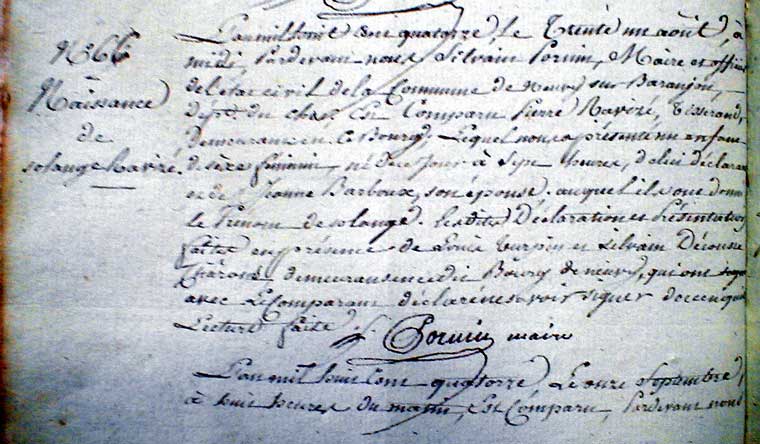 N° 66
Naissance
de
solange Raviré.
L'an mil huit cent quatorze Le trente un août, à
midi, Pardevant nous Silvain Pornin, Maire et officier
de l'état civil de la Commune de neuvy sur Baranjon,
dépt. du cher, Est Comparu Pierre Raviré, Tisserand,
Demeurant en ce Bourg, Lequel nous a présenté un enfant
de sexe féminin, né Ce jour à Sept heures, de lui déclarant
et de Jeanne Barboux, son épouse, auquel ils ont donné
le Prénom de solange. Lesdites Déclaration et Présentation
faites en présence de Louis turpin et silvain
Charons demeurans en ce dit Bourg de neuvy, qui ont
avec Le Comparant déclaré ne savoir signer de ce enquis
Lecture faite.
Pornin maire
L'an mil huit cent quatorze, Le onze Septembre,
à huit heures du matin, Est Comparu, Pardevant nous